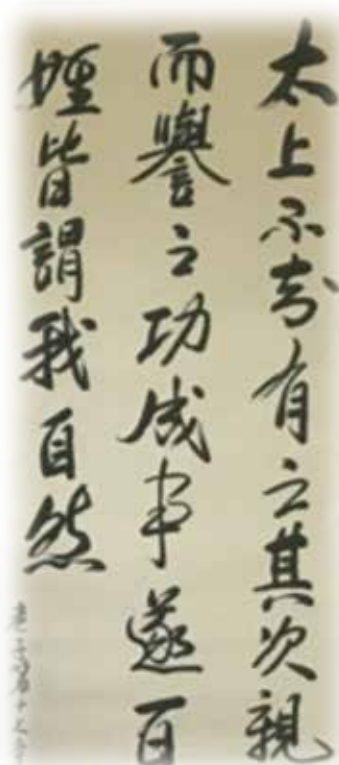 太上不知有之其次親
而譽之功成事遂百
姓皆謂我自然
老子第十七章